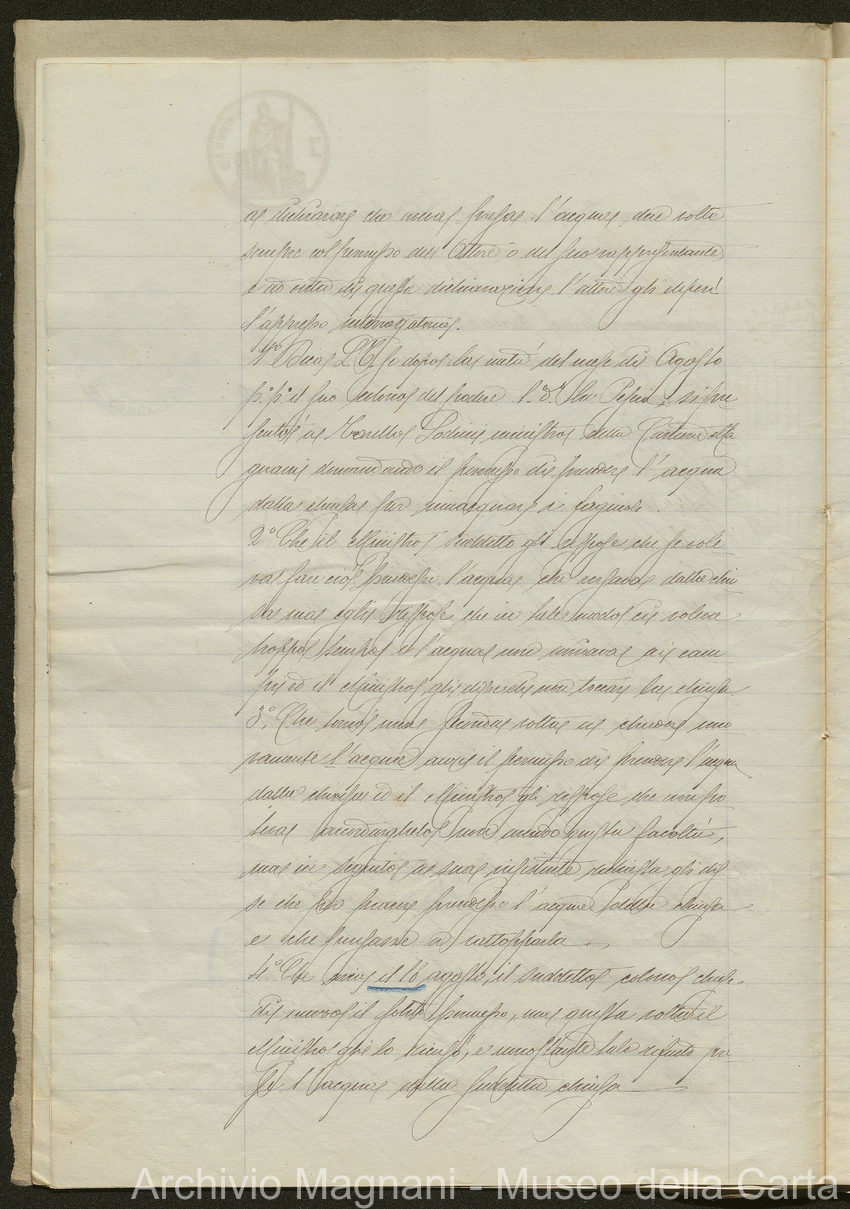 a dichiarare che aveva preso l'acqua due volte
sempre col permesso dell'Attore o del suo rappresentante,
e ad onta di questa dichiarazione l'attore gli deferì
l'appresso interrogatorio.
1° Dica l'E. se dopo la metà del mese di Agosto
p.° p.° il suo colono del podere l.° d.° la , si pre
sentò a Lodini ministro della Cartiera Ma
gnani domandando il permesso di prendere l'acqua
dalla chiusa per rinacquare i fagioli.
2° Che il Ministro suddetto gli rispose che se vole
va far ciò prendesse l'acqua che dalla chiu
sa ma egli rispose che in tale modo ci voleva
troppo tempo e l'acqua non arrivava ai cam
pi ed il Ministro gli disse di non toccare la chiusa
3°. Che tornò una seconda volta a chiedere nuo
vamente l'acqua anzi il permesso di prendere l'acqua
dalla chiusa ed il Ministro gli rispose che non po
teva accordarglielo non avendo questa facoltà,
ma in seguito a sua insistente richiesta gli dis
se che per prendesse l'acqua dalla chiusa
e che pensasse a rattopparla.
4° Che circa il 18 agosto, il suddetto colono chiese
di nuovo il solito permesso, ma questa volta il
Ministro glie lo ricusò, e nonostante tale rifiuto pre
se l'acqua dalla suddetta chiusa
Archivio Magnani - Museo della Carta